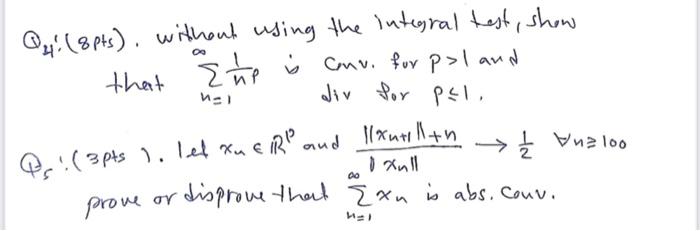 Q4: (8pts). without using the integral test, show
that ∞ Σ n=1 1/n^p is conv. for p>1 and
div for p≤1.
Q5: (3pts). let xn ∈ ℝ^p and (||xn+1|| + n)/||xn|| → 1/2 ∀n≥100
prove or disprove that ∞ Σ n=1 xn is abs. conv.